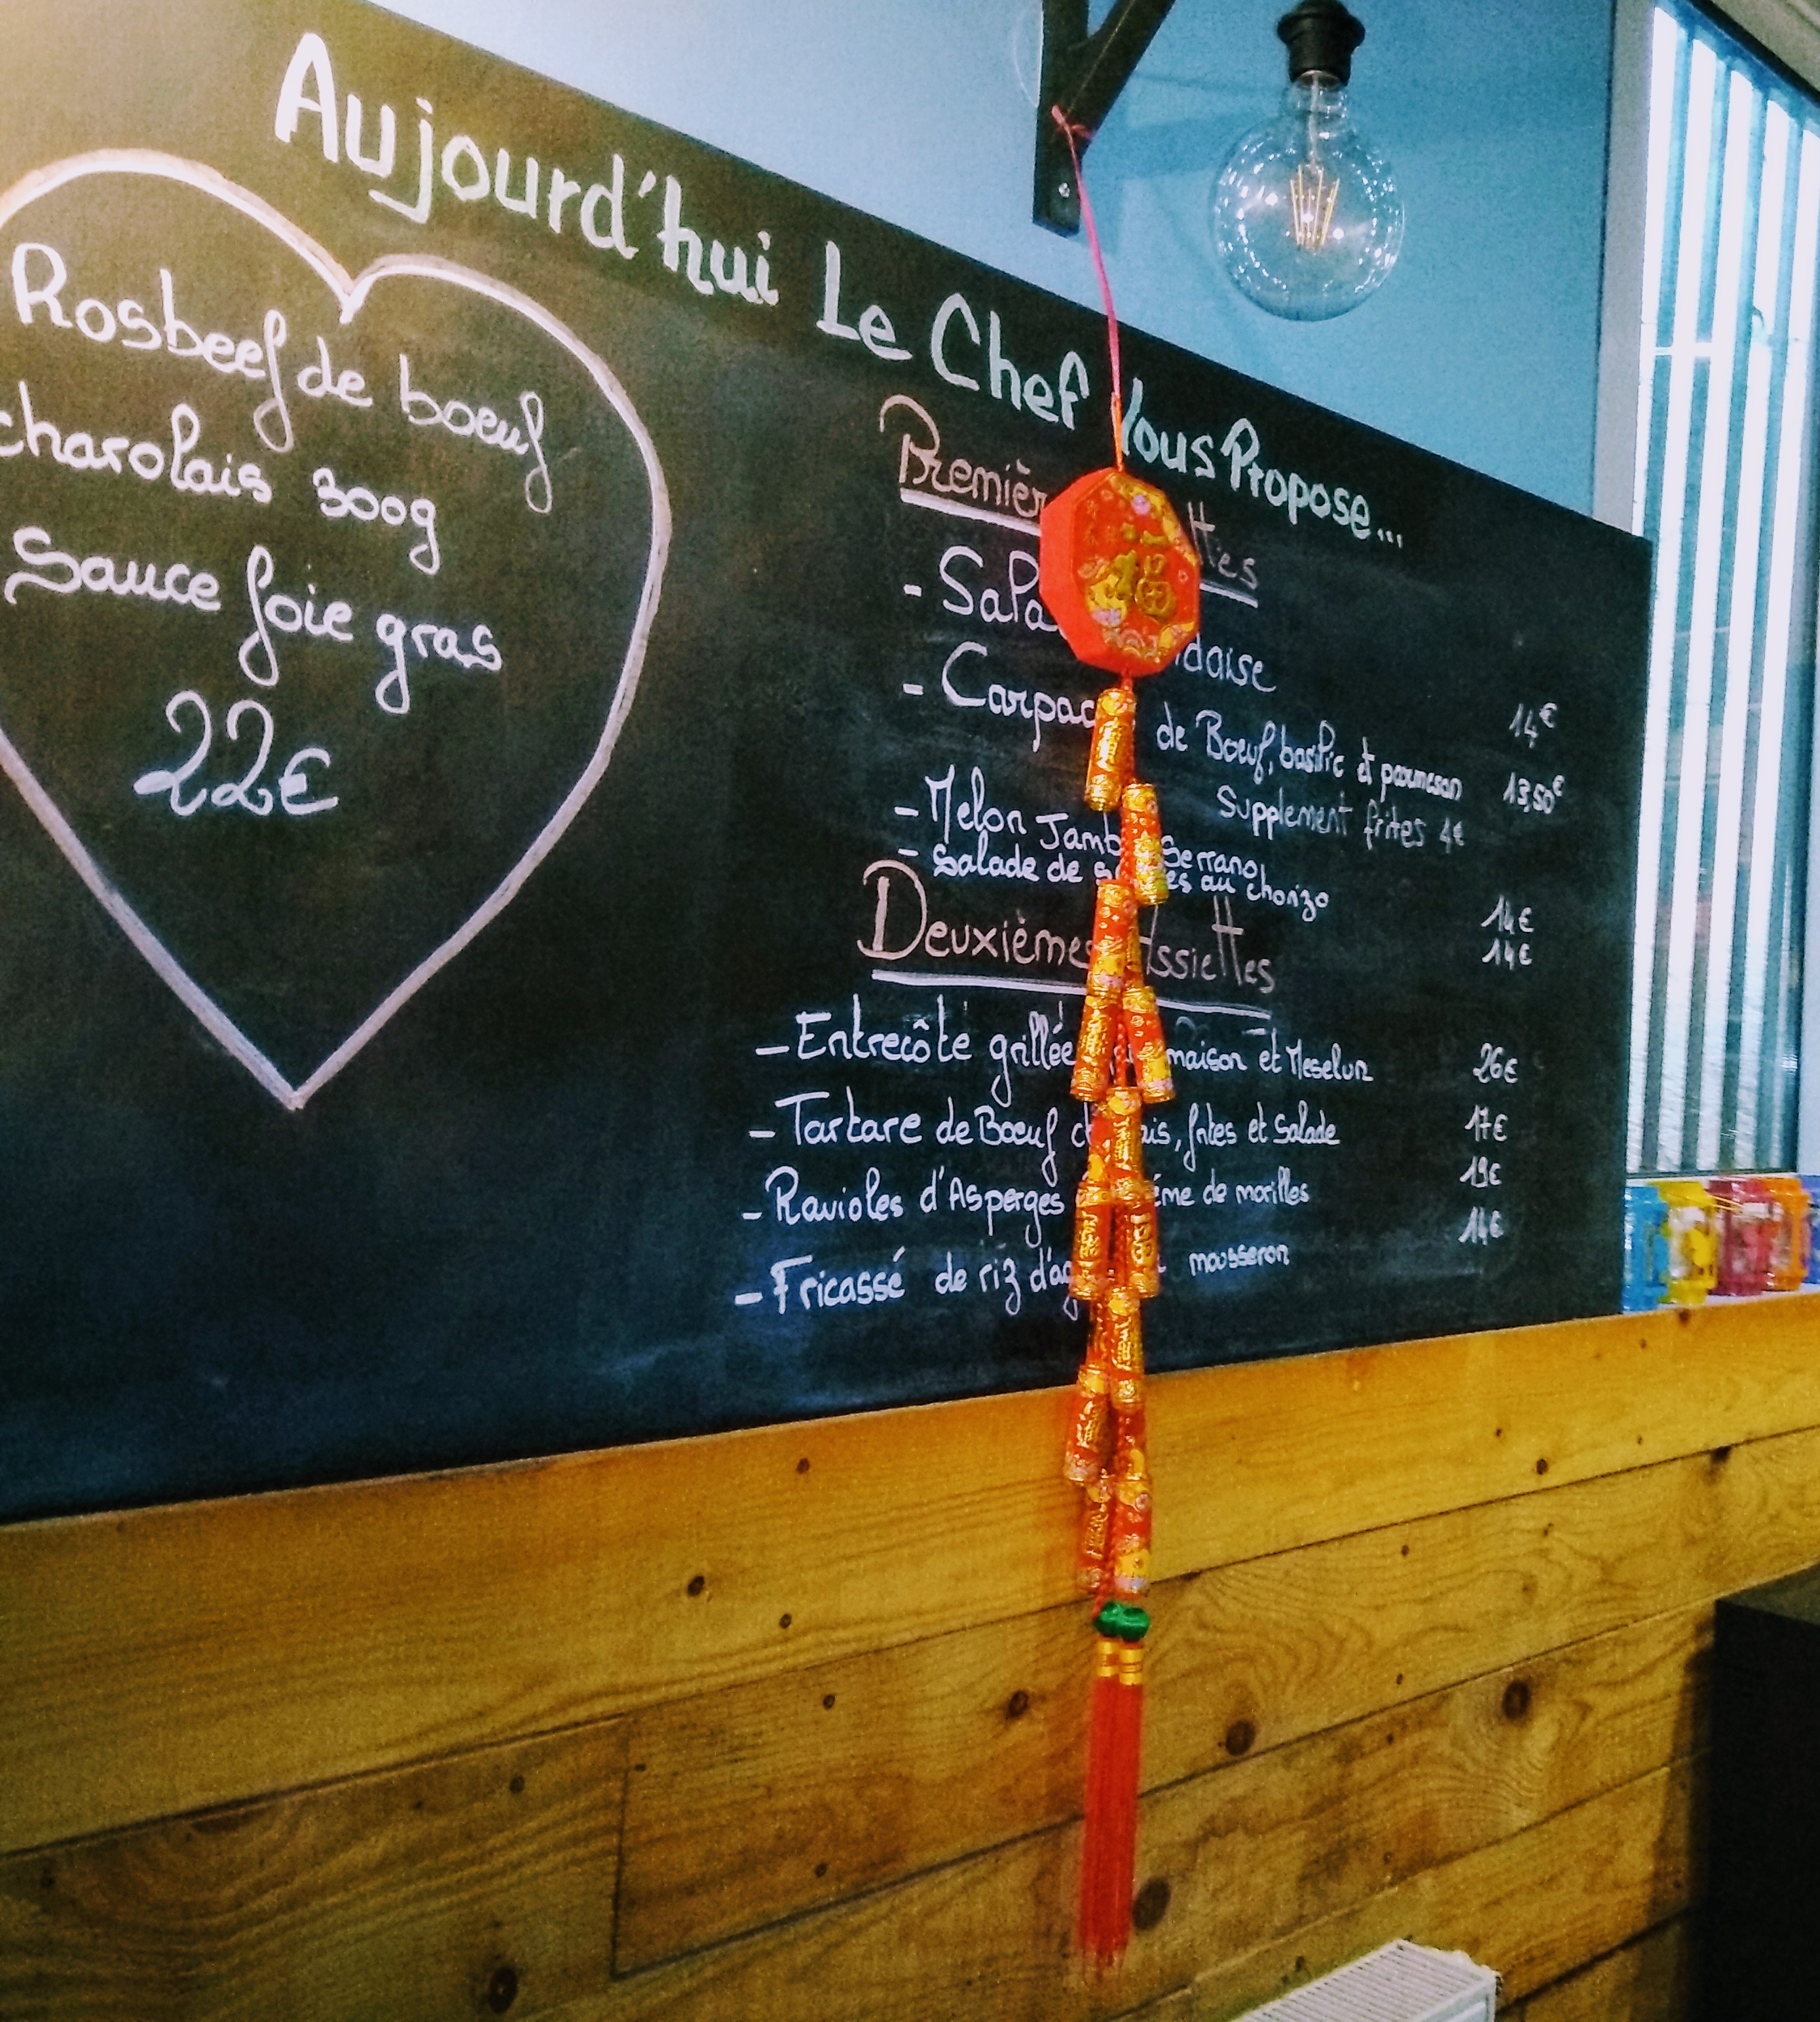 Aujourd'hui Le Chef Vous Propose...
Rosbeef de boeuf
charolais 300g
Sauce foie gras
22€
Premièr ttes
- Sala daise 14€
- Carpac de Boeuf, basilic et parmesan 13,50€
Supplement frites 4€
- Melon Jamb Serrano 14€
- Salade de au chorizo 14€
Deuxièmes Assiettes
- Entrecôte grillée maison et Meselun 26€
- Tartare de Boeuf ais, frites et Salade 17€
- Ravioles d'Asperges ème de morilles 19€
- Fricassé de riz mousseron 14€
福